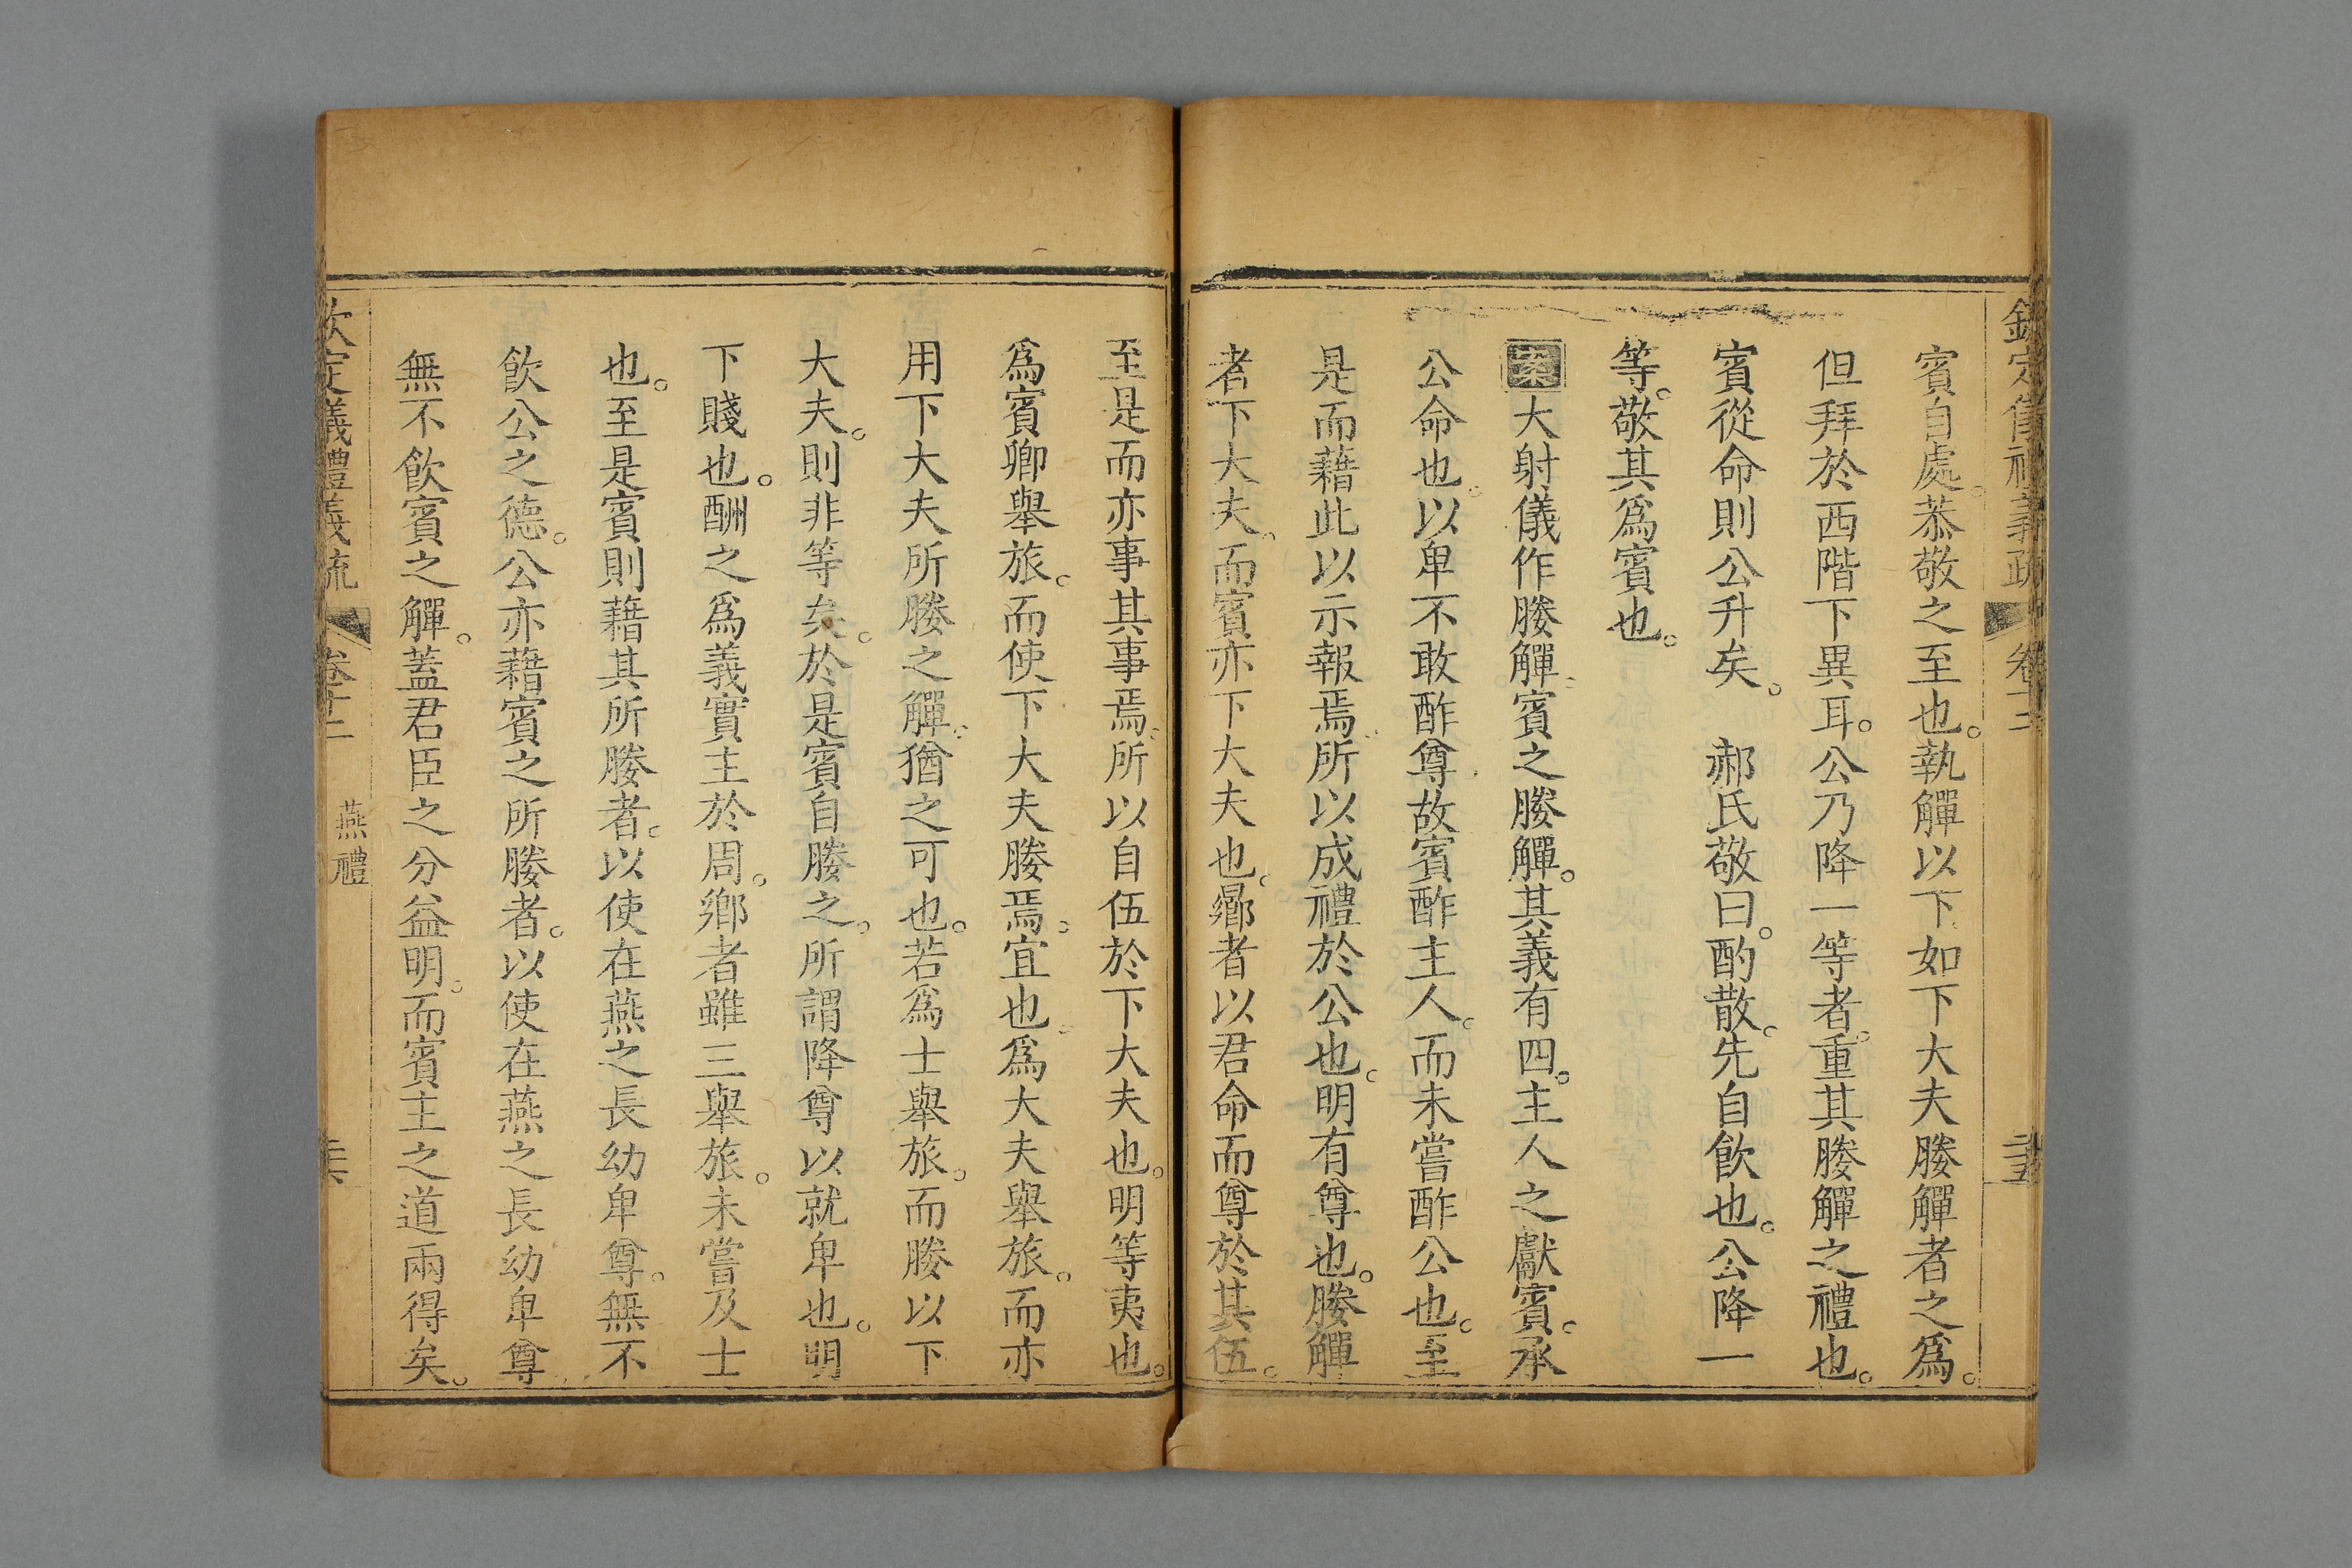 欽定儀禮義疏 卷十二 二十五
賓自處。恭敬之至也。執觶以下如下大夫媵觶者之爲。
但拜於西階下異耳。公乃降一等者。重其媵觶之禮也。
賓從命則公升矣。 郝氏敬曰。酌散。先自飲也。公降一
等。敬其爲賓也。
案大射儀作媵觶。賓之媵觶。其義有四。主人之獻賓。承
公命也。以卑不敢酢尊故賓酢主人。而未嘗酢公也。至
是而藉此以示報焉。所以成禮於公也。明有尊也。媵觶
者下大夫。而賓亦下大夫也。鄉者以君命而尊於其伍。
至是而亦事其事焉。所以自伍於下大夫也。明等夷也。
爲賓卿舉旅。而使下大夫媵焉。宜也。爲大夫舉旅。而亦
用下大夫所媵之觶。猶之可也。若爲士舉旅。而媵以下
大夫。則非等矣。於是賓自媵之。所謂降尊以就卑也。明
下賤也。酬之爲義實主於周。鄉者雖三舉旅。未嘗及士
也。至是賓則藉其所媵者。以使在燕之長幼卑尊。無不
飲公之德。公亦藉賓之所媵者。以使在燕之長幼卑尊
無不飲賓之觶。蓋君臣之分益明。而賓主之道兩得矣。
欽定儀禮義疏 卷十二 燕禮 二十六